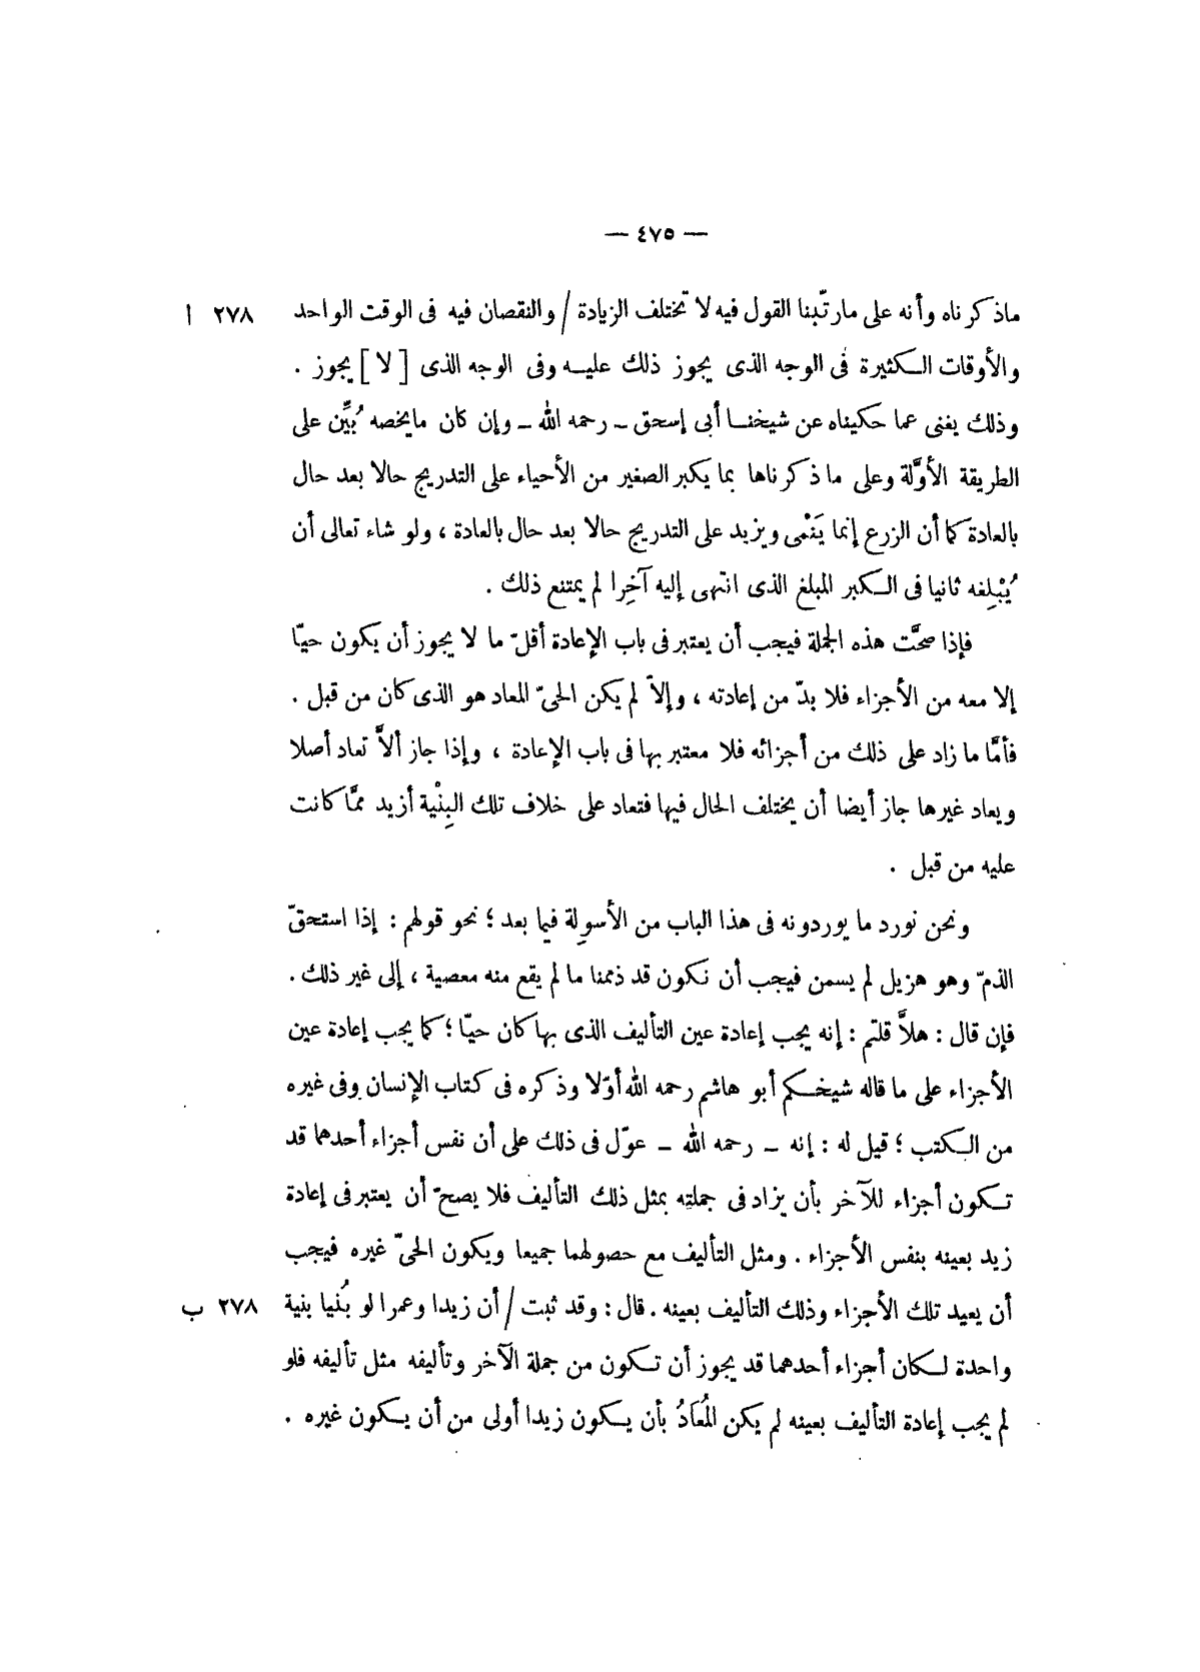 — ٤٧٥ —
ماذكرناه وأنه على مارتّبنا القول فيه لا تختلف الزيادة / والنقصان فيه فى الوقت الواحد ٢٧٨ ا
والأوقات الكثيرة فى الوجه الذى يجوز ذلك عليه وفى الوجه الذى [ لا ] يجوز .
وذلك يغنى عما حكيناه عن شيخنا أبى إسحق – رحمه الله – وإن كان مايخصه بُيِّن على
الطريقة الأوَّلة وعلى ما ذكرناها بما يكبر الصغير من الأحياء على التدريج حالا بعد حال
بالعادة كما أن الزرع إنما يَنْمى ويزيد على التدريج حالا بعد حال بالعادة ، ولو شاء تعالى أن
يُبْلِغه ثانيا فى الكبر المبلغ الذى انتهى إليه آخِرا لم يمتنع ذلك .
فإذا صحَّت هذه الجملة فيجب أن يعتبر فى باب الإعادة أقلّ ما لا يجوز أن يكون حيّا
إلا معه من الأجزاء فلا بدّ من إعادته ، وإلاّ لم يكن الحىّ المعاد هو الذى كان من قبل .
فأمَّا ما زاد على ذلك من أجزائه فلا معتبر بها فى باب الإعادة ، وإذا جاز ألاَّ تعاد أصلا
ويعاد غيرها جاز أيضا أن يختلف الحال فيها فتعاد على خلاف تلك البِنْية أزيد ممَّا كانت
عليه من قبل .
ونحن نورد ما يوردونه فى هذا الباب من الأسوِلة فيما بعد ؛ نحو قولهم : إذا استحقّ
الذمّ وهو هزيل لم يسمن فيجب أن نكون قد ذممنا ما لم يقع منه معصية ، إلى غير ذلك .
فإن قال : هلاَّ قلتم : إنه يجب إعادة عين التأليف الذى بها كان حيّا ؛ كما يجب إعادة عين
الأجزاء على ما قاله شيخكم أبو هاشم رحمه الله أوّلا وذكره فى كتاب الإنسان وفى غيره
من الكتب ؛ قيل له : إنه – رحمه الله – عوّل فى ذلك على أن نفس أجزاء أحدهما قد
تكون أجزاء للآخر بأن يزاد فى جملته بمثل ذلك التأليف فلا يصحّ أن يعتبر فى إعادة
زيد بعينه بنفس الأجزاء . ومثل التأليف مع حصولهما جميعا ويكون الحىّ غيره فيجب
أن يعيد تلك الأجزاء وذلك التأليف بعينه . قال : وقد ثبت / أن زيدا وعمرا لو بُنيا بنية ٢٧٨ ب
واحدة لكان أجزاء أحدهما قد يجوز أن تكون من جملة الآخر وتأليفه مثل تأليفه فلو
لم يجب إعادة التأليف بعينه لم يكن المُعَادُ بأن يكون زيدا أولى من أن يكون غيره .